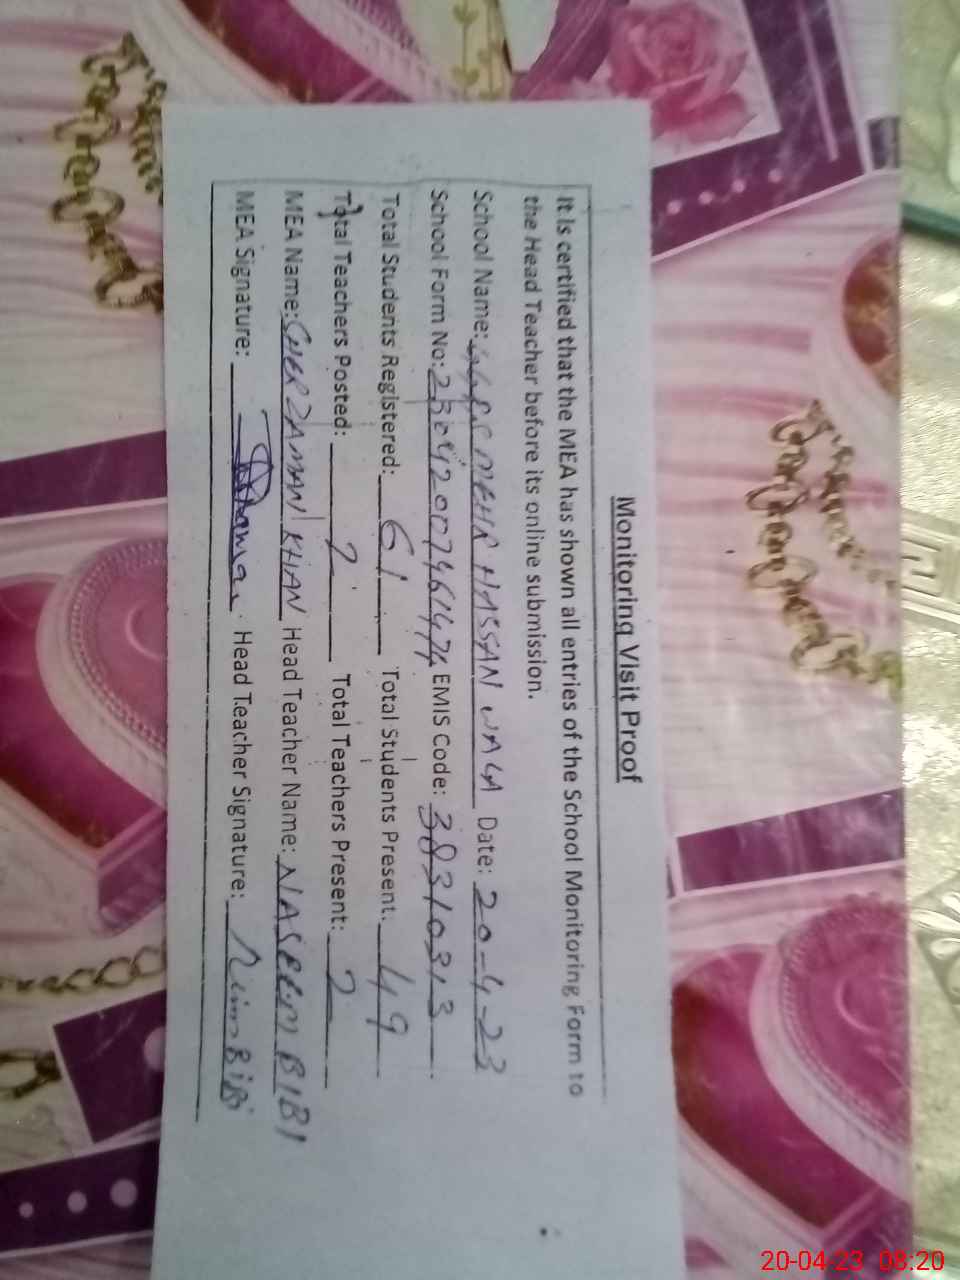 Monitoring Visit Proof
It is certified that the MEA has shown all entries of the School Monitoring Form to
the Head Teacher before its online submission.
School Name: GGPS MEHR HASSAN WALA Date: 20-4-23
School Form No: EMIS Code: 38310313
Total Students Registered: 61 Total Students Present: 49
Total Teachers Posted: 2 Total Teachers Present: 2
MEA Name: SHER ZAMAN KHAN Head Teacher Name: NASEEM BIBI
MEA Signature: Head Teacher Signature: BiBi
20-04-23 08:20